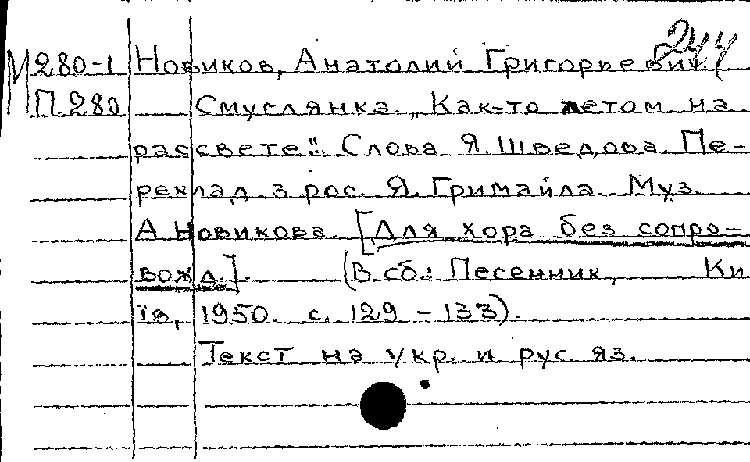 244
М 280-1 Новиков, Анатолий Григорьевич.
П 280 Смуглянка. „Как-то летом на
рассвете". Слова Я. Шведова. Пе-
реклад з рос. Я. Гримайла. Муз.
А. Новикова. [Для хора без сопро-
вожд.]. (В сб.: Песенник, Ки
їв, 1950. с. 129-133).
Текст на укр. и рус. яз.